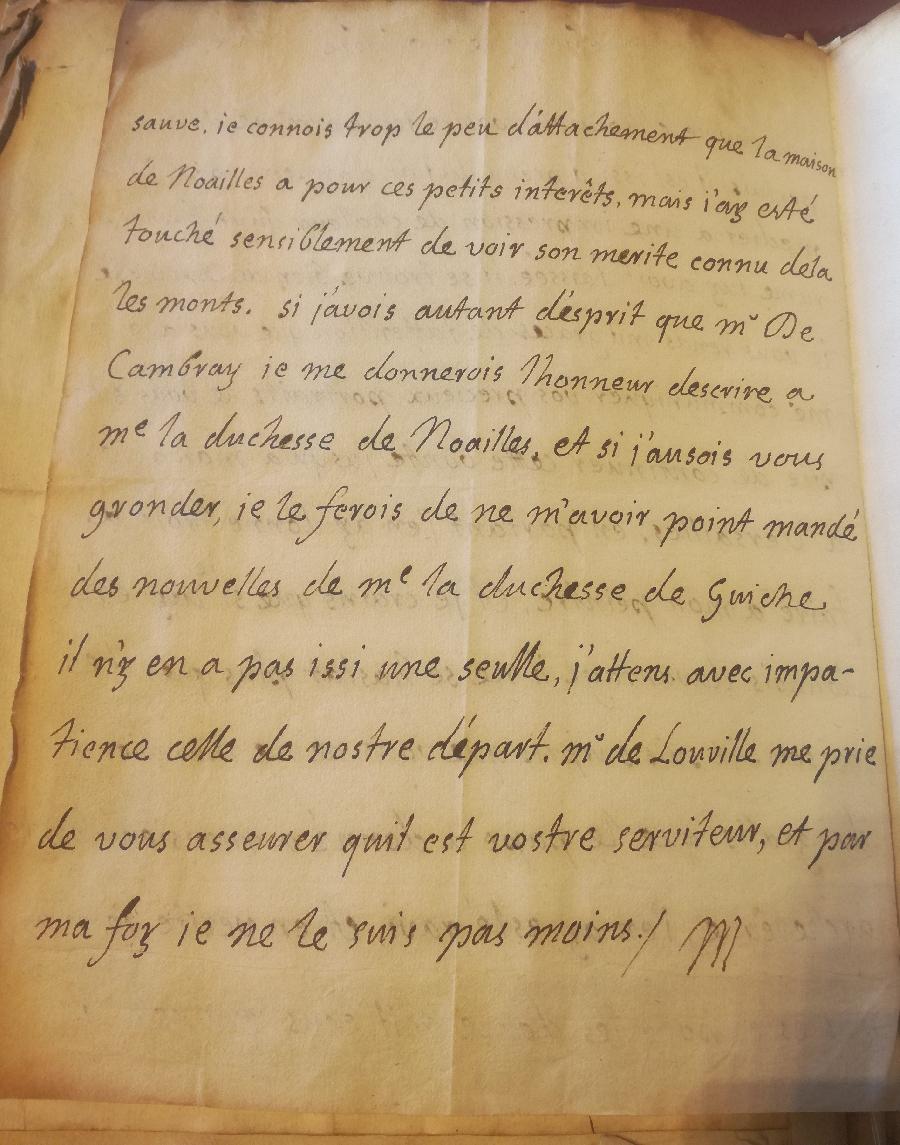 sauve. ie connois trop le peu d'attachement que la maison
de Noailles a pour ces petits interêts, mais i'ay esté
touché sensiblement de voir son merite connu dela
les monts. si j'avois autant d'esprit que mr De
Cambray ie me donnerois lhonneur descrire a
me la duchesse de Noailles. et si j'ausois vous
gronder, ie le ferois de ne m'avoir point mandé
des nouvelles de me la duchesse de Guiche
il n'y en a pas issi une seulle, j'attens avec impa-
tience celle de nostre départ. mr de Louville me prie
de vous asseurer quil est vostre serviteur, et par
ma foy ie ne le suis pas moins./